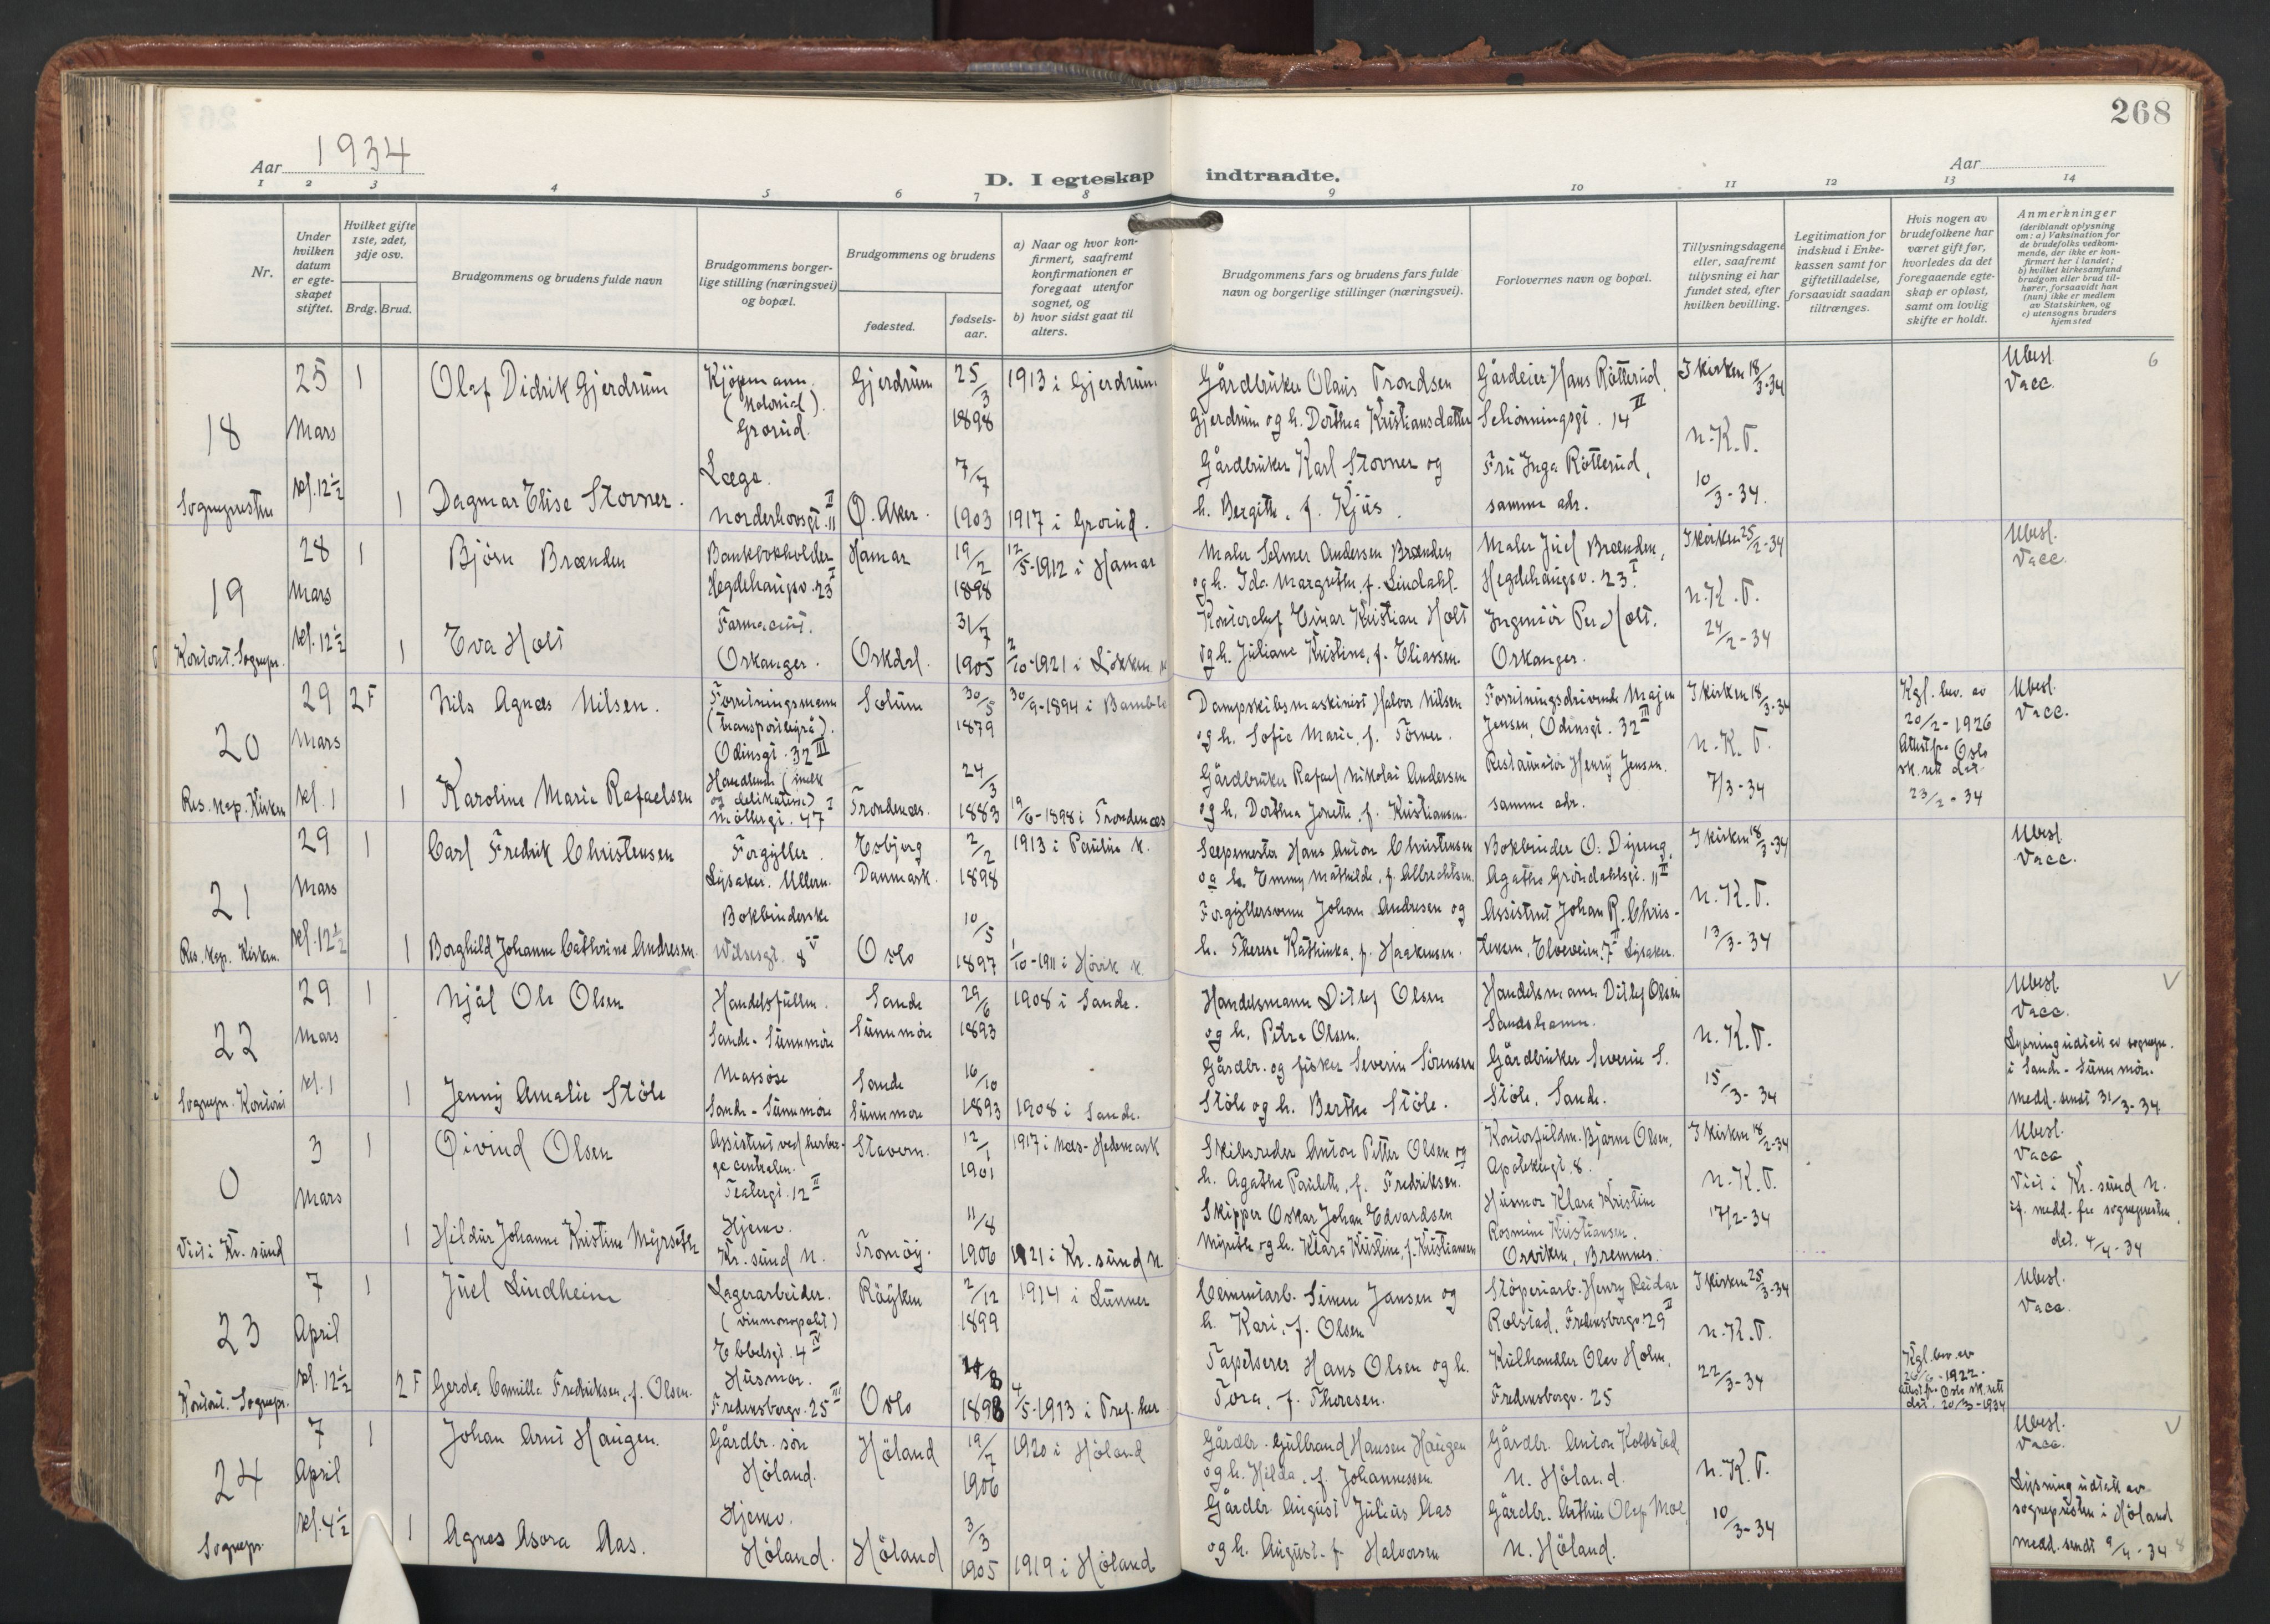 268
Aar 1934
D. I egteskap indtraadte.
Aar
1 2 3 4 5 6 7 8 9 10 11 12 13 14
Nr.
Under hvilken datum er egte-skapet stiftet.
Hvilket gifte 1ste, 2det, 3dje osv.
Brdg. Brud.
Brudgommens og brudens fulde navn
Brudgommens borger-lige stilling (næringsvei) og bopæl.
Brudgommens og brudens
fødested.
fødsels-aar.
a) Naar og hvor kon-firmert, saafremt konfirmationen er foregaat utenfor sognet, og
b) hvor sidst gaat til alters.
Brudgommens fars og brudens fars fulde navn og borgerlige stillinger (næringsvei).
Forlovernes navn og bopæl.
Tillysningsdagene eller, saafremt tillysning ei har fundet sted, efter hvilken bevilling.
Legitimation for indskud i Enke-kassen samt for giftetilladelse, forsaavidt saadan tiltrænges.
Hvis nogen av brudefolkene har været gift før, hvorledes da det foregaaende egte-skap er opløst, samt om lovlig skifte er holdt.
Anmerkninger (deriblandt oplysning om: a) Vaksination for de brudefolks vedkom-mende, der ikke er kon-firmert her i landet; b) hvilket kirkesamfund brudgom eller brud til-hører, forsaavidt han (hun) ikke er medlem av Statskirken, og c) utensogns bruders hjemsted
18
Sognepresten
25 Mars kl. 12½
1
Olaf Didrik Gjerdrum
Kjöpmann. (kolonial). Grorud.
Gjerdrum
25/3 1898
1913 i Gjerdrum
Gårdbruker Olaus Trondsen
Gjerdrum og h. Dorthea Kristiansdatter
Gårdeier Hans Rötterud,
Schönningsgt. 14 II
I kirken 18/3-34
N.K.T.
10/3-34.
Ubesl.
Vacc.
6
1
Dagmar Elise Stovner.
Læge.
Norderhovsgt. 11 II
Ø. Aker.
7/7 1903
1917 i Grorud.
Gårdbruker Karl Stovner og
h. Bergitte, f. Kjus.
Fru Inga Rötterud,
samme adr.
19
Kontoret. Sognepr.
28 Mars kl. 12½
1
Björn Brænden
Bankbokholder
Hegdehaugsv. 23 I
Hamar
19/2 1898
12/5-1912 i Hamar
Maler Selmer Andersen Brænden
og h. Ida Margrethe, f. Lindahl.
Maler Juel Brænden,
Hegdehaugsv. 23 I
I kirken 25/2-34
N.K.T.
24/2-34
Ubesl.
Vacc.
1
Eva Holt
Farmaceut.
Orkanger.
Orkdal.
31/7 1905
2/10-1921 i Lökken
Kontorchef Einar Kristian Holt
og h. Juliane Kristine, f. Eliassen.
Ingeniör Per Holt.
Orkanger.
20
Res. kap. Kirken
29 Mars kl. 1
2 F
Nils Agnæs Nilsen.
Forretningsmann
Odinsgt. 32 III
Solum
30/5 1879
30/9-1894 i Bamble
Dampskibsmaskinist Halvor Nilsen
og h. Sofie Marie, f. Törner.
Forretningsdrivende Majen
Jensen, Odinsgt. 32 III
I kirken 18/3-34
N.K.T.
7/3-34
Kgl. bev. av
20/2-1926
Attest fra Oslo
sk. rett dat.
23/2-34
Ubesl.
Vacc.
1
Karoline Marie Rafaelsen
Handlende (melk
og delikatesse)
Möllergt. 47 I
Trondenæs.
24/3 1883
19/6-1898 i Trondenæs
Gårdbruker Rafael Nikolai Andersen
og h. Dorthea Josette, f. Kristiansen.
Restauratör Henry Jensen.
samme adr.
21
Res. kap. Kirken.
29 Mars kl. 12½
1
Carl Fredrik Christensen
Forgyller.
Lysaker. Ullern.
Esbjerg
Danmark.
2/2 1898
1913 i Paulus k.
Sæpemester Hans Anton Christensen
og h. Emmy Mathilde, f. Albrechtsen.
Bokbinder O. Dyreng,
Agathe Gröndahlsgt. 11 II
I kirken 18/3-34
N.K.T.
13/3-34
Ubesl.
Vacc.
1
Borghild Johanne Cathrine Andresen.
Bokbinderske
Wilsesgt. 8 V
Oslo
10/5 1897
1/10-1911 i Hövik k.
Forgyllersvenn Johan Andresen og
h. Therese Kathinka, f. Haakensen.
Assistent Johan R. Chris-
tensen, Elveveien 7 II Lysaker.
22
Sognepr. Kontoret
29 Mars kl. 1
1
Njål Ole Olsen
Handelsfullm.
Sande - Sunnmöre
Sande
Sunnmöre
29/6 1893
1908 i Sande.
Handelsmann Ditlef Olsen
og h. Petra Olsen.
Handelsmann Ditlef Olsen
Sandshamn.
N.K.T.
15/3-34
Ubesl.
Vacc.
Lysning utstedt av sognepr.
i Sande - Sunnmöre.
Medd. sendt 31/3-34
V
1
Jenny Amalie Stöle
Massöse
Sande - Sunnmöre
Sande
Sunnmöre
16/10 1893
1908 i Sande.
Gårdbr. og fisker Severin Sörensen
Stöle og h. Berthe Stöle.
Gårdbruker Severin S.
Stöle, Sande.
0
Viet i Kr. sund
3 Mars
1
Øivind Olsen
Assistent ved herber-
gecentralen.
Teatergt. 12 II
Stavern.
12/1 1901
1917 i Næs-Hedemark
Skibsreder Anton Petter Olsen og
h. Agathe Paulette, f. Fredriksen.
Kontorfullm. Bjarne Olsen,
Apotekergt. 8.
I kirken 18/2-34
N.K.T.
17/2-34
Ubesl.
Vacc
Viet i Kr. sund N.
if. medd. fra sognepresten,
dat. 4/4-34
1
Hildur Johanne Kristine Myrseth
Hjemv.
Kr. sund N.
Tromöy.
11/8 1906
1921 i Kr. sund N.
Skipper Oskar Johan Edvardsen
Myrseth og h. Klara Kristine, f. Kristiansen
Husmor Klara Kristine
Rosmine Kristiansen.
Orviken, Bremnes.
23
Kontoret. Sognepr.
7 April kl. 12½
1
Juel Lindheim
Lagerarbeider.
(vinmonopolet)
Ebbelsgt. 4 IV
Röyken
2/12 1899
1914 i Lunner
Cementarb. Simen Jansen og
h. Kari, f. Olsen
Stöperiarb. Henry Reidar
Rolstad, Fredensborgv. 29 II
I kirken 25/3-34
N.K.T.
22/3-34
Ubesl.
Vacc.
2 F
Gerda Camilla Fredriksen, f. Olsen.
Husmor.
Fredensborgv. 25 III
Oslo
1898
4/5-1913 i Tref. her
Tapetserer Hans Olsen og h.
Tora, f. Thoresen.
Kulhandler Olav Holm,
Fredensborgv. 25
Kgl. bev. av
26/6-1922.
Attest fra Oslo sk. rett
dat. 20/3-1934
24
Sognepr.
7 April kl. 4½
1
Johan Arnt Haugen.
Gårdbr. sön
Höland.
Höland
19/7 1906
1920 i Höland
Gårdbr. Gulbrand Hansen Haugen
og h. Hilda, f. Johannessen.
Gårdbr. Anton Kolstad
N. Höland.
N.K.T.
10/3-34
Ubesl.
Vacc.
Lysning utstedt av
sognepresten i Höland
Medd. sendt 9/4-34
V
1
Agnes Asora Aas.
Hjemv.
Höland.
Höland
3/3 1905
1919 i Höland
Gårdbr. August Julius Aas
og h. August. f. Halvorsen
Gårdbr. Arthur Olaf Moe,
N. Höland.